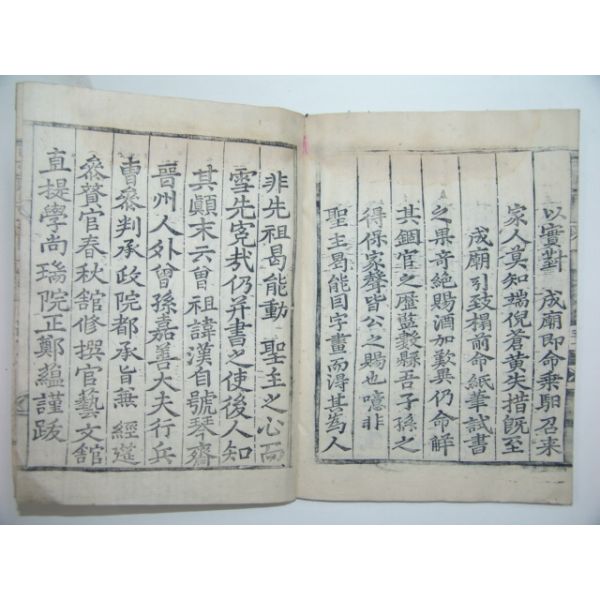 以實對　成廟即命乘馹召来
家人莫知端倪蒼黃失措旣至
成廟引致榻前命紙筆試書
之果奇絶賜酒加歎異仍命解
其錮官之歷藍縠縣吾子孫之
得保家聲皆公之賜也噫非
聖主曷能因字畫而淂其為人
非先祖曷能動　聖主之心而
雪先寃㢤仍并書之使後人知
其顚末云曾祖諱漢自號琴齋
晉州人外曾孫嘉善大夫行兵
曺叅判承政院都承旨兼　經筵
叅贊官春秋館修撰官藝文館
直提學尚瑞院正鄭蘊謹跋